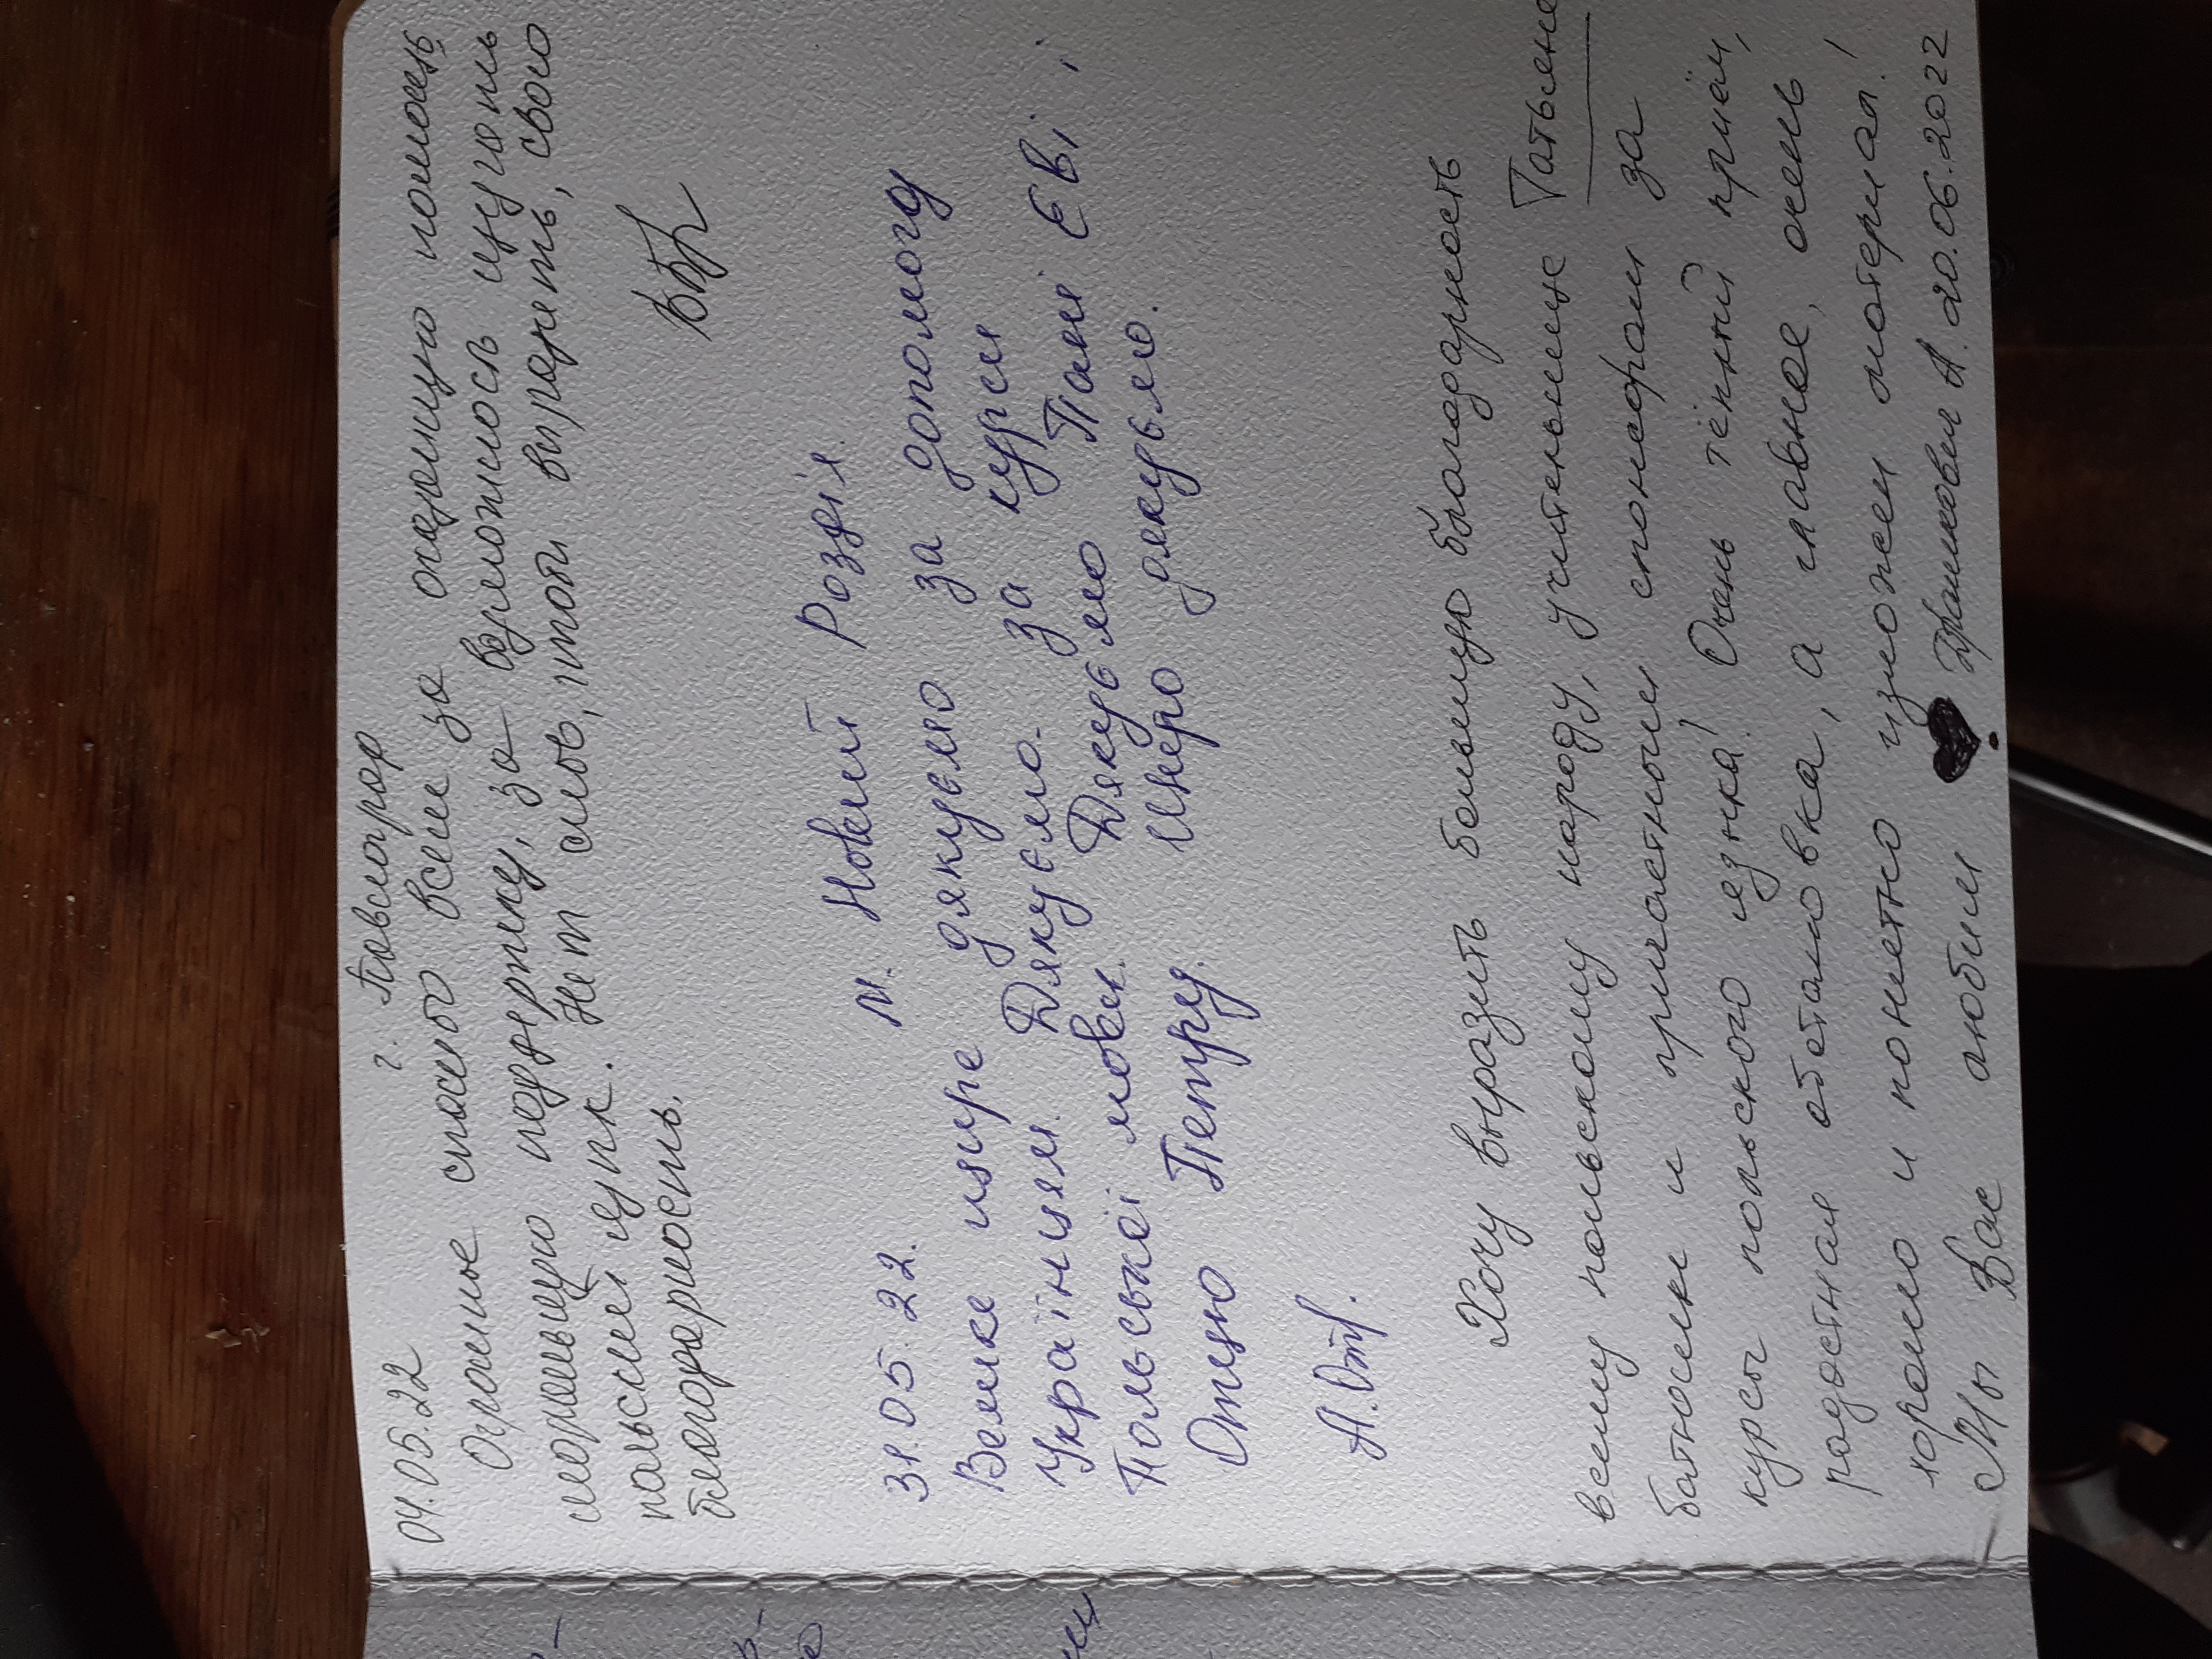 04.05.22 г. Павлоград
Огромное спасибо всем за оказанную помощь
моральную поддержку, за возможность изучать
польский язык. Нет слов, чтоб выразить, свою
благодарность.
31.05.22. м. Новий Розділ.
Велике щире дякуємо за допомогу
Українцям. Дякуємо. за курси
Польської мови. Дякуємо Пані Єві і
Отцю Петру. Щиро дякуємо.
Хочу выразить большую благодарность
всему польскому народу, учительнице Татьяне
батюшке и причастным спонсорам за
курсы польского языка! Очень тёплый приём,
радостная обстановка, а главное, очень
хорошо и понятно изложен материал!
Мы Вас любим А. 20.06.2022